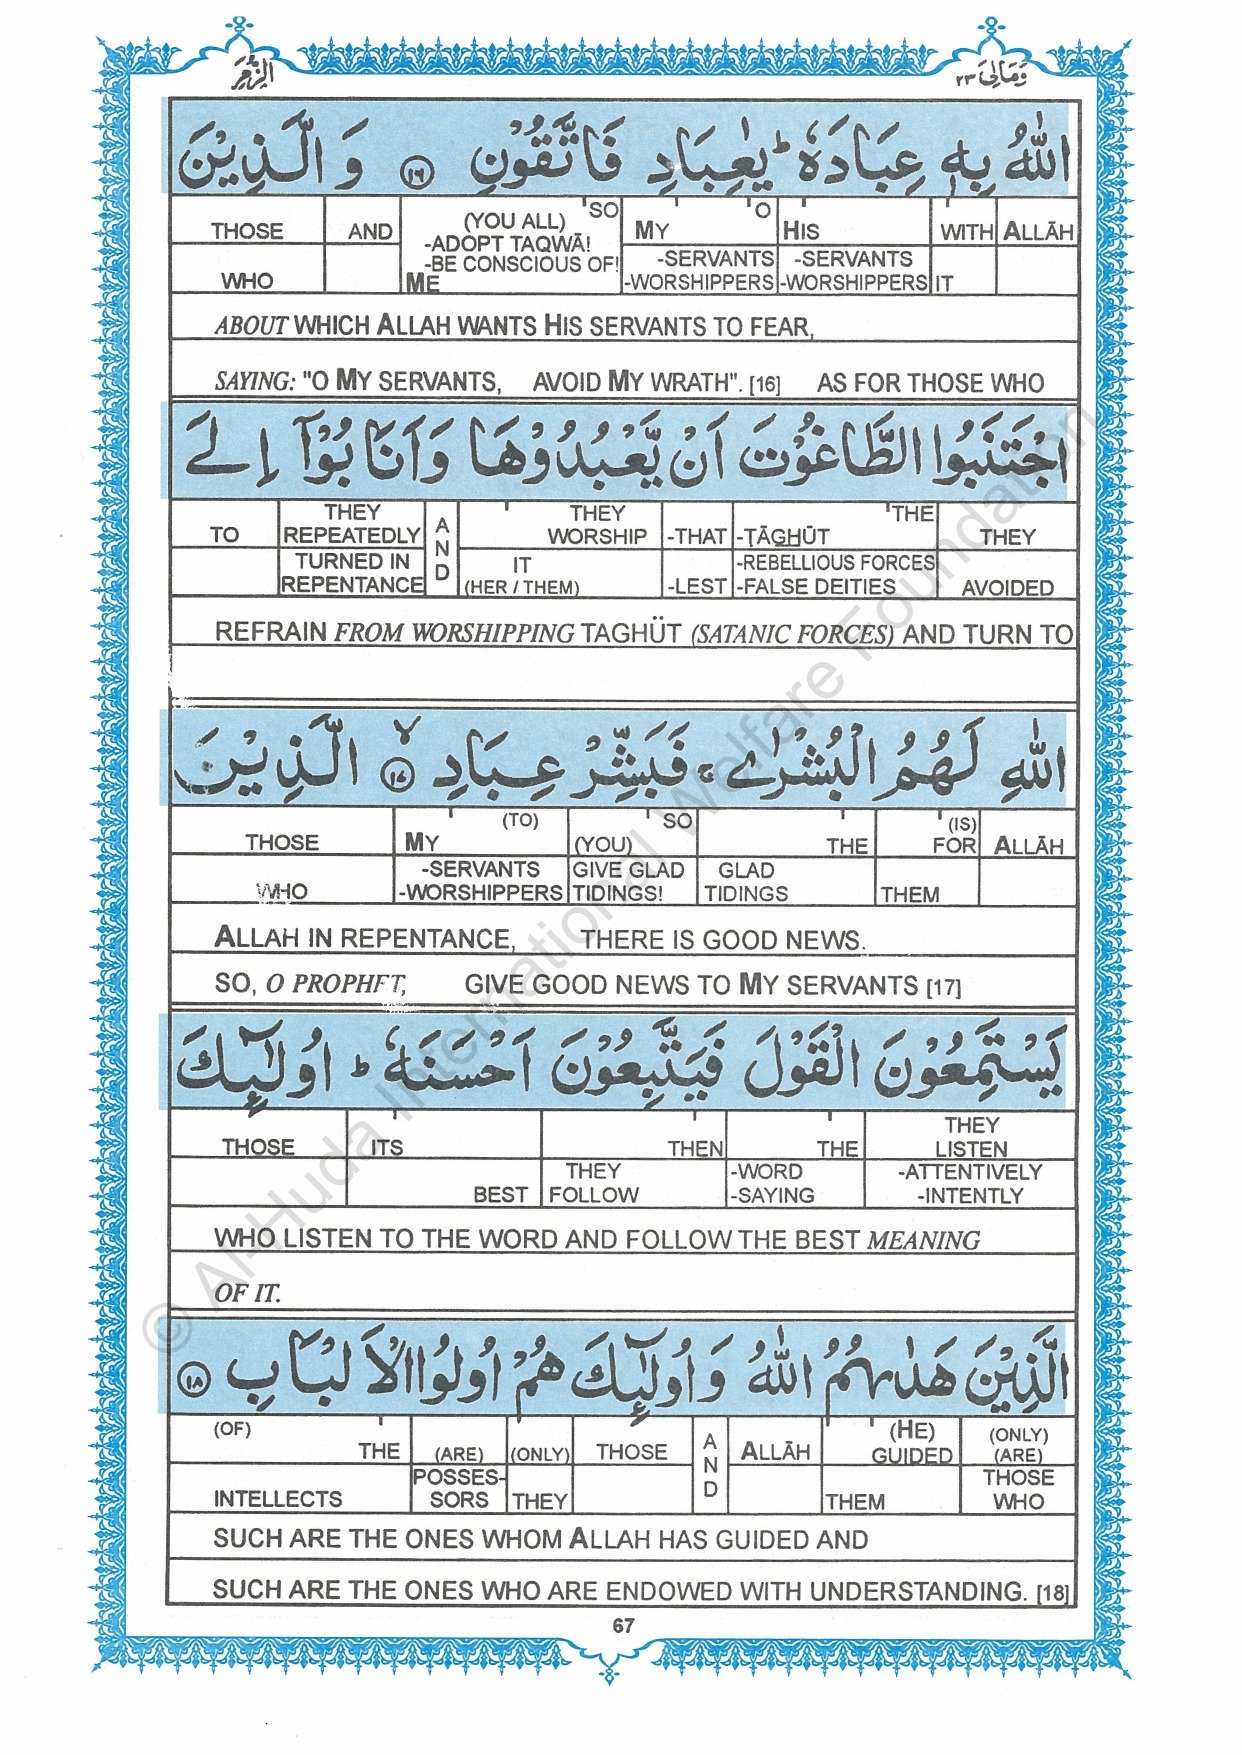 الزمر
وَمَالِىَ ٢٣
اللّٰهُ بِهٖ عِبَادَهٗ ؕ يٰعِبَادِ فَاتَّقُوْنِ ١٦ وَالَّذِيْنَ
THOSE AND (YOU ALL) 'SO MY 'O HIS WITH ALLĀH
-ADOPT TAQWĀ!
WHO -BE CONSCIOUS OF! -SERVANTS -SERVANTS
ME -WORSHIPPERS -WORSHIPPERS IT
ABOUT WHICH ALLAH WANTS HIS SERVANTS TO FEAR,
SAYING: "O MY SERVANTS, AVOID MY WRATH". [16] AS FOR THOSE WHO
اجْتَنَبُوا الطَّاغُوْتَ اَنْ يَّعْبُدُوْهَا وَاَنَابُوْۤا اِلَى
TO THEY REPEATEDLY AND THEY WORSHIP -THAT 'THE -ṬĀGHŪT THEY
TURNED IN REPENTANCE IT (HER / THEM) -LEST -REBELLIOUS FORCES -FALSE DEITIES AVOIDED
REFRAIN FROM WORSHIPPING TAGHÜT (SATANIC FORCES) AND TURN TO
اللّٰهِ لَهُمُ الْبُشْرٰى ۚ فَبَشِّرْ عِبَادِ ١٧ ۙ الَّذِيْنَ
THOSE MY (TO) (YOU) SO THE (IS) FOR ALLĀH
WHO -SERVANTS -WORSHIPPERS GIVE GLAD TIDINGS! GLAD TIDINGS THEM
ALLAH IN REPENTANCE, THERE IS GOOD NEWS.
SO, O PROPHET, GIVE GOOD NEWS TO MY SERVANTS [17]
يَسْتَمِعُوْنَ الْقَوْلَ فَيَتَّبِعُوْنَ اَحْسَنَهٗ ؕ اُولٰٓئِكَ
THOSE ITS THEN THE THEY LISTEN
BEST THEY FOLLOW -WORD -SAYING -ATTENTIVELY -INTENTLY
WHO LISTEN TO THE WORD AND FOLLOW THE BEST MEANING
OF IT.
الَّذِيْنَ هَدٰىهُمُ اللّٰهُ وَاُولٰٓئِكَ هُمْ اُولُوا الْاَلْبَابِ ١٨
(OF) THE (ARE) (ONLY) THOSE AND ALLĀH (HE) GUIDED (ONLY) (ARE)
INTELLECTS POSSES-SORS THEY THEM THOSE WHO
SUCH ARE THE ONES WHOM ALLAH HAS GUIDED AND
SUCH ARE THE ONES WHO ARE ENDOWED WITH UNDERSTANDING. [18]
67
© Al-Huda International Welfare Foundation